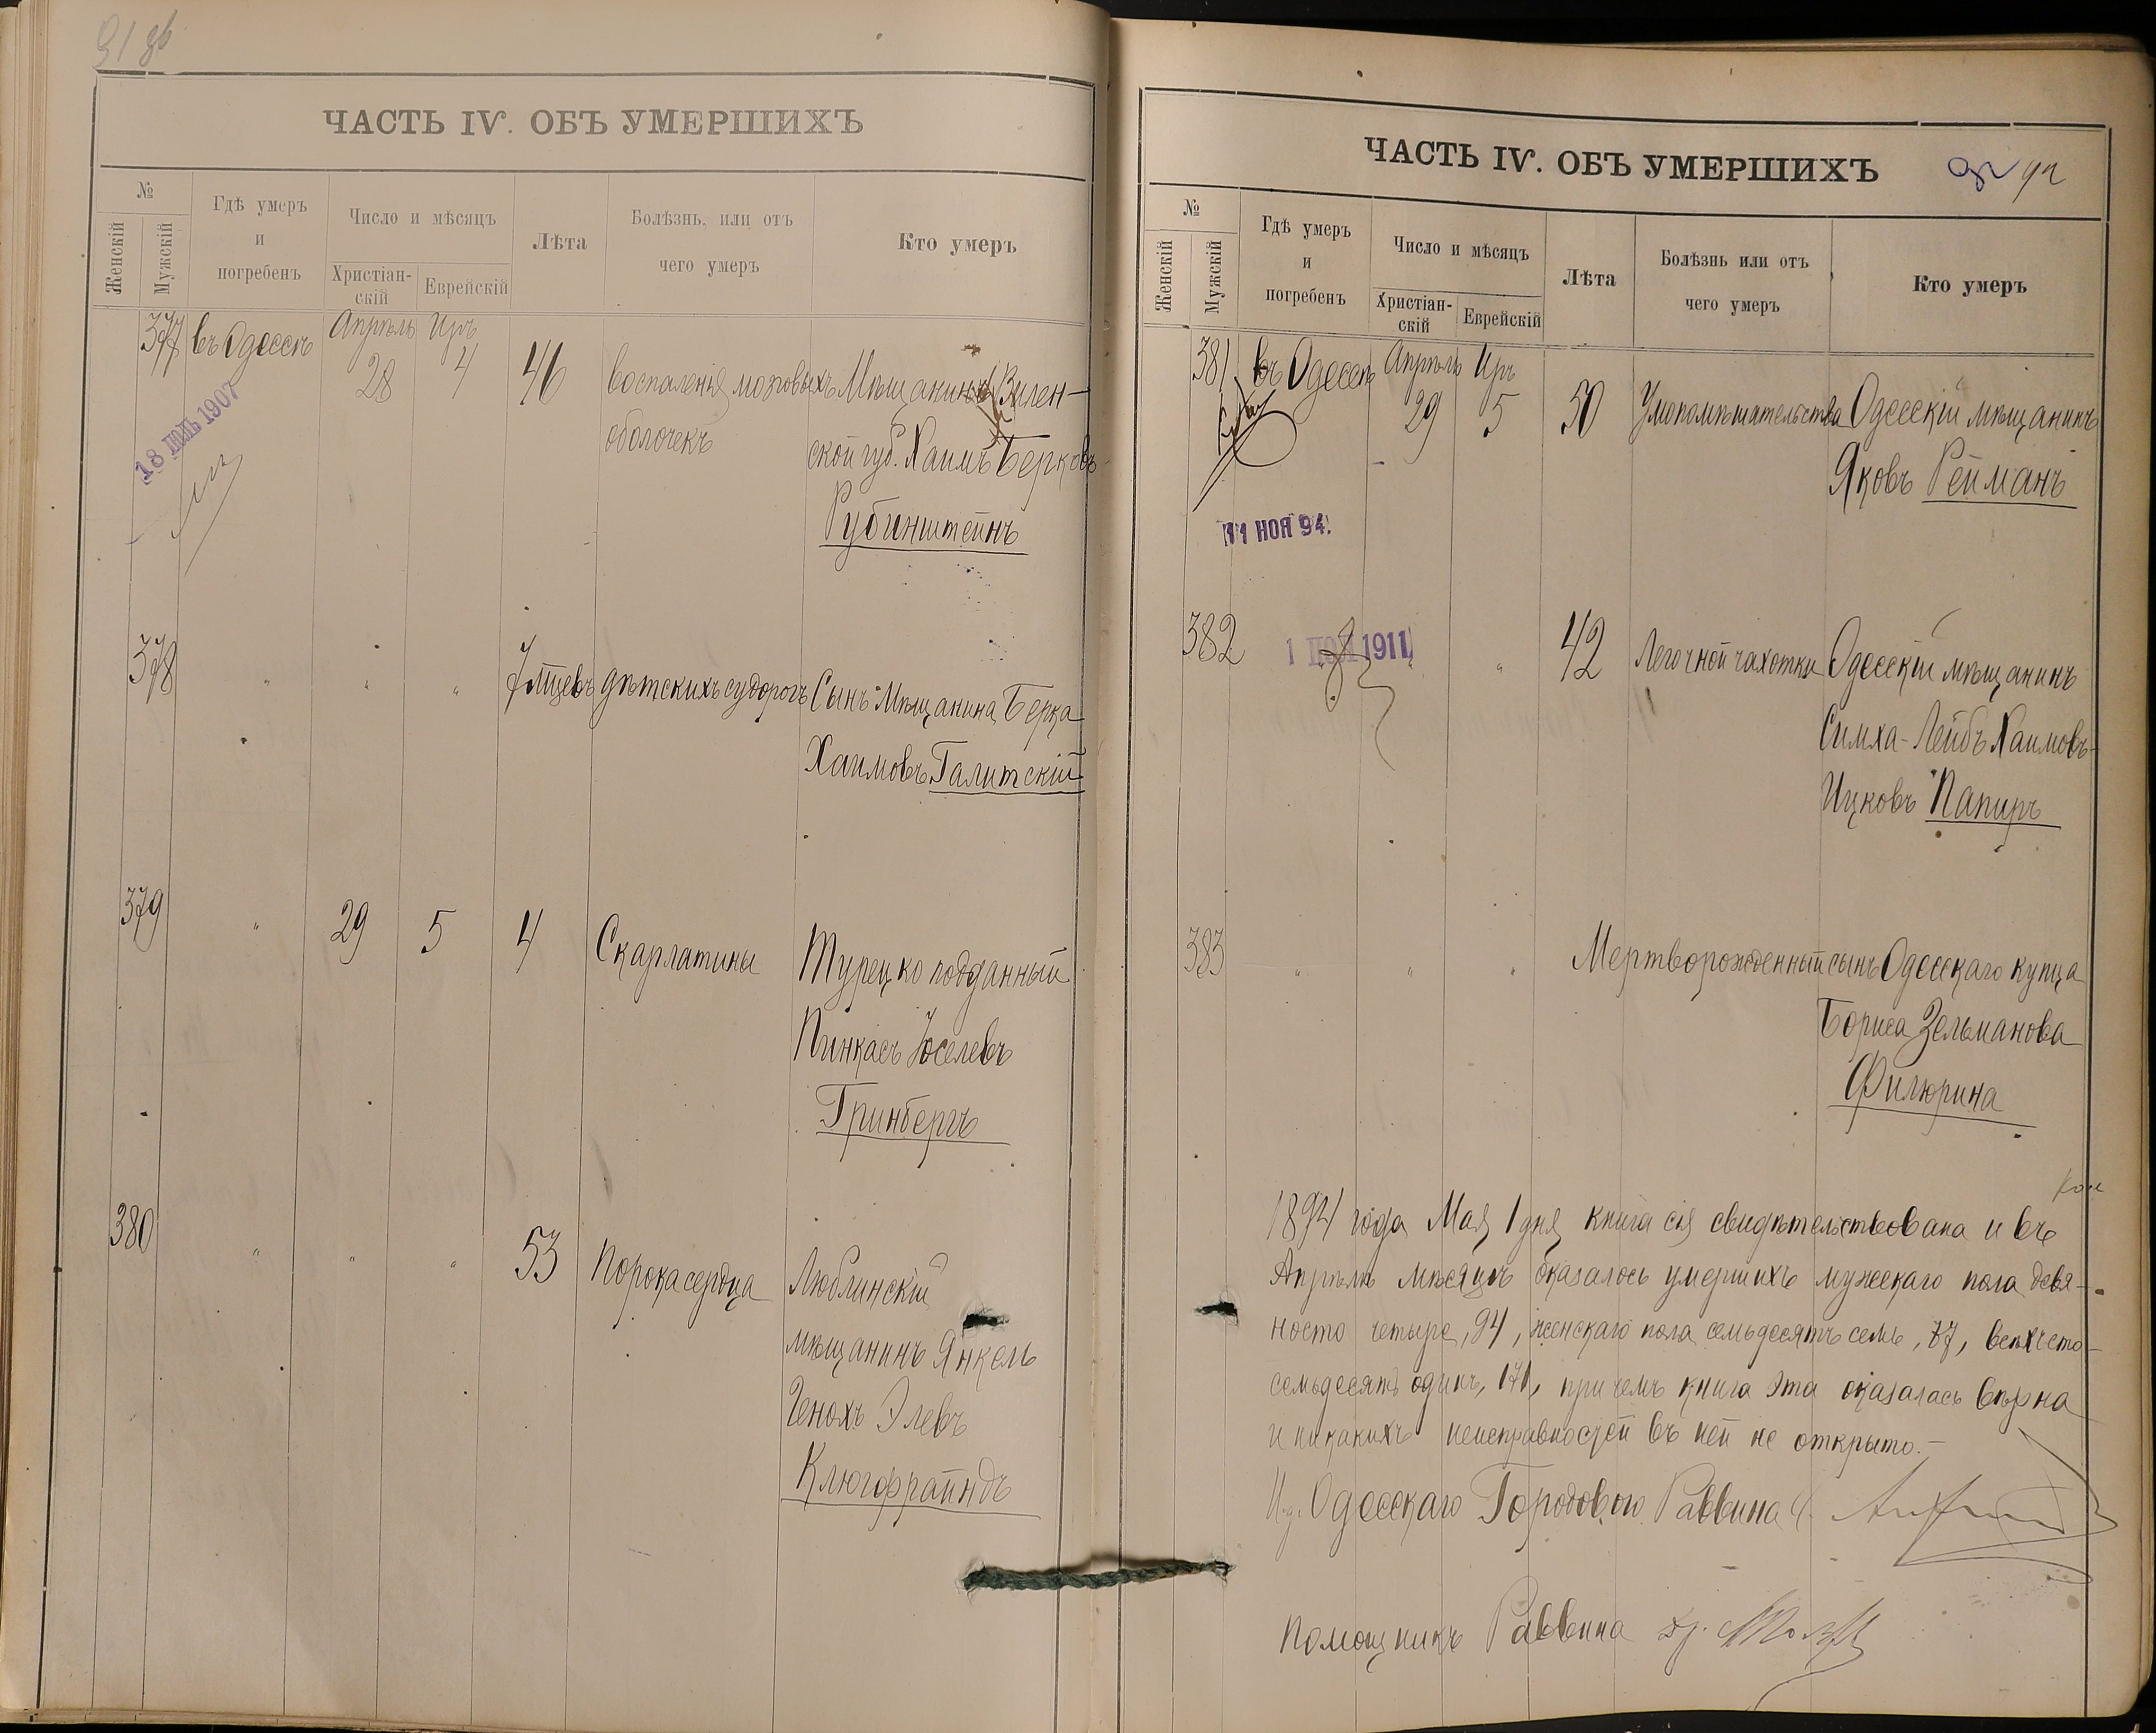 91 об
ЧАСТЬ IV. ОБЪ УМЕРШИХЪ
№
Женскій
Мужскій
Гдѣ умеръ
и
погребенъ
Число и мѣсяцъ
Христіан-
скій
Еврейскій
Лѣта
Болѣзнь, или отъ
чего умеръ
Кто умеръ
377 въ Одессѣ Апрѣль Иръ
28 4 46 воспаленія мозговыхъ Мѣщанинъ Вилен-
оболочекъ ской губ. Хаимъ Берковъ
18 ІЮЛЬ 1907
Рубинштейнъ
378 " " " 7 мѣсяцевъ дѣтскихъ судорогъ Сынъ Мѣщанина Берка
Хаимовъ Галитскій
379 " 29 5 4 Скарлатины Турецко подданный
Пинкасъ Іоселевъ
Гринбергъ
380 " " " 53 Порока сердца Люблинскій
мѣщанинъ Янкель
Генохъ Элевъ
Клюгфрайндъ
ЧАСТЬ IV. ОБЪ УМЕРШИХЪ
92 92
№
Женскій
Мужскій
Гдѣ умеръ
и
погребенъ
Число и мѣсяцъ
Христіан-
скій
Еврейскій
Лѣта
Болѣзнь или отъ
чего умеръ
Кто умеръ
381 въ Одессѣ Апрѣль Иръ
29 5 50 Умопомѣшательства Одесскій мѣщанинъ
Яковъ Рейманъ
11 НОЯ 94.
382 1911 " " 42 Легочной чахотки Одесскій мѣщанинъ
Симха-Лейбъ Хаимовъ-
Ицковъ Папиръ
383 " " " Мертворожденный сынъ Одесскаго купца
Бориса Зельманова
Филюрина
1894 года Мая 1 дня книга сія свидѣтельствована и въ
Апрѣлѣ мѣсяцѣ оказалось умершихъ мужескаго пола девя-
носто четыре, 94, женскаго пола семьдесятъ семь, 77, всѣхъ сто-
семьдесятъ одинъ, 171, при чемъ книга эта оказалась вѣрна
и никакихъ неисправностей въ ней не открыто.-
И.д. Одесскаго Городового Раввина
Помощникъ Раввина